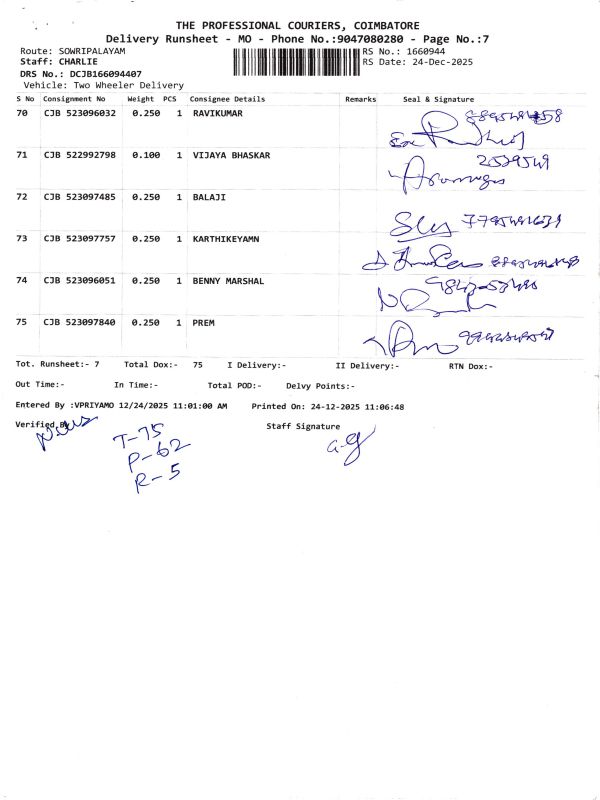 THE PROFESSIONAL COURIERS, COIMBATORE
Delivery Runsheet - MO - Phone No.:9047080280 - Page No.:7
Route: SOWRIPALAYAM RS No.: 1660944
Staff: CHARLIE RS Date: 24-Dec-2025
DRS No.: DCJB166094407
Vehicle: Two Wheeler Delivery
S No Consignment No Weight PCS Consignee Details Remarks Seal & Signature
70 CJB 523096032 0.250 1 RAVIKUMAR
71 CJB 522992798 0.100 1 VIJAYA BHASKAR
72 CJB 523097485 0.250 1 BALAJI
73 CJB 523097757 0.250 1 KARTHIKEYAMN
74 CJB 523096051 0.250 1 BENNY MARSHAL
75 CJB 523097840 0.250 1 PREM
Tot. Runsheet:- 7 Total Dox:- 75 I Delivery:- II Delivery:- RTN Dox:-
Out Time:- In Time:- Total POD:- Delvy Points:-
Entered By :VPRIYAMO 12/24/2025 11:01:00 AM Printed On: 24-12-2025 11:06:48
Verified By Staff Signature
T-75
P-62
R-5